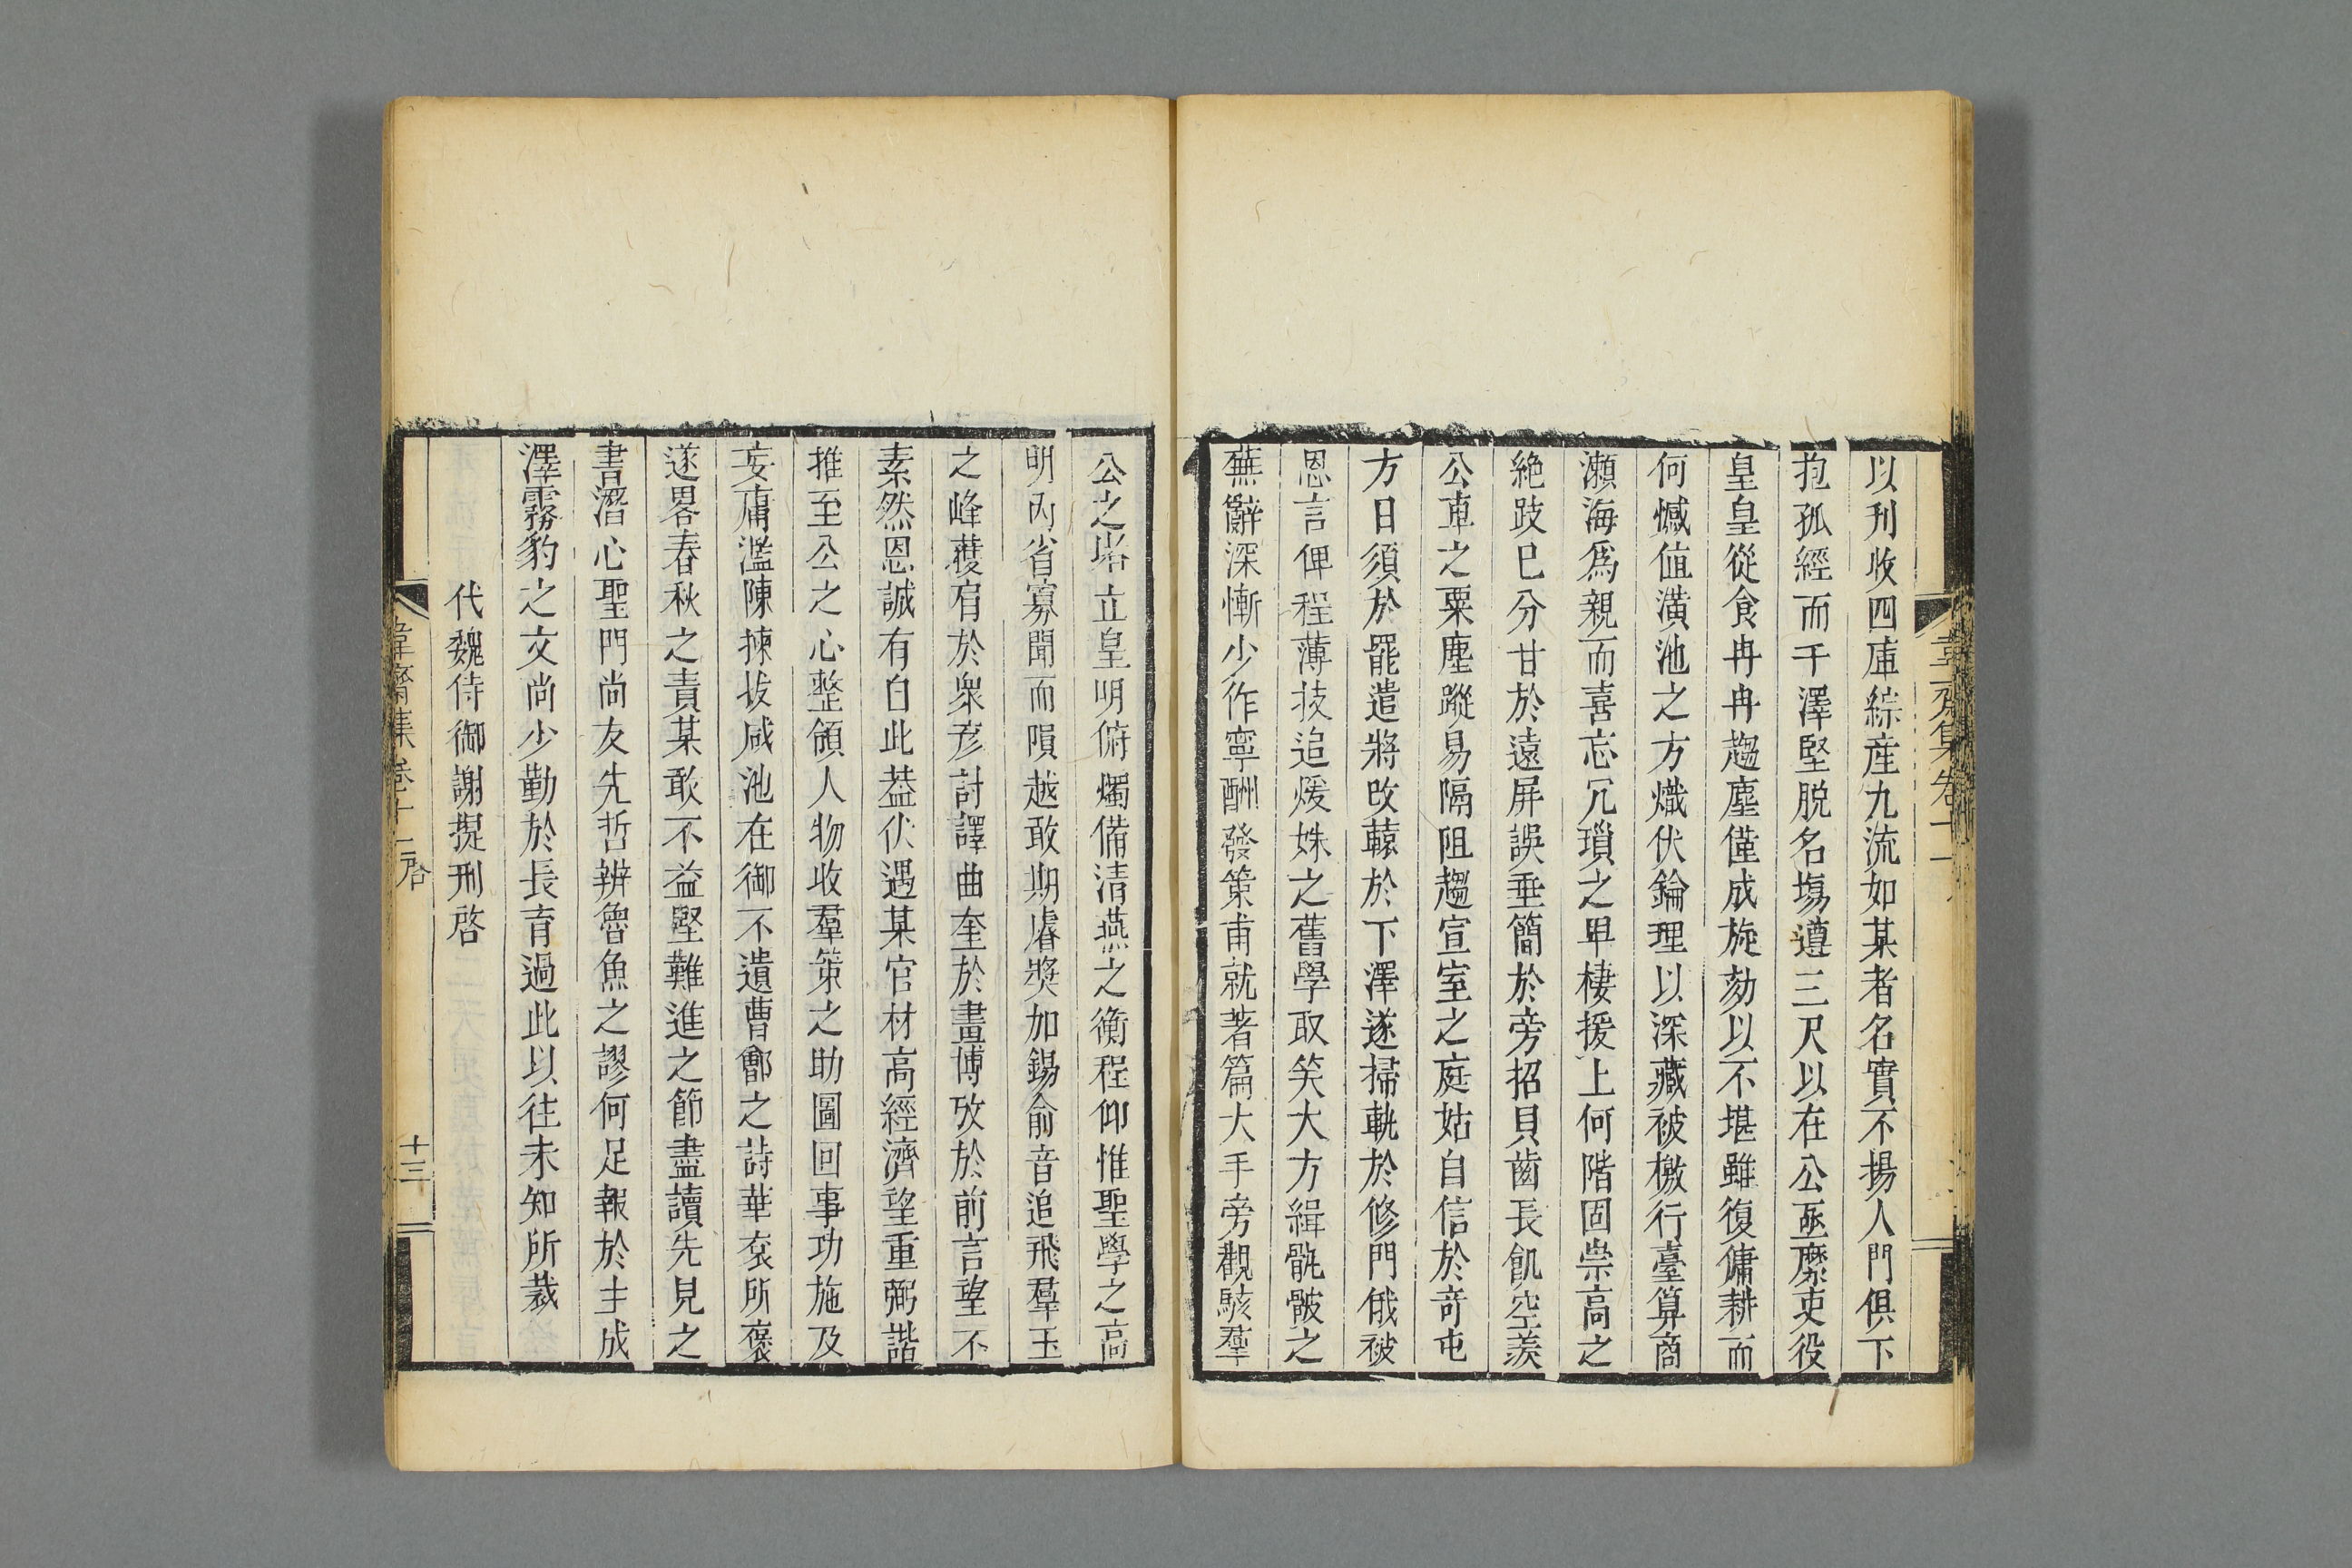 以刋收四庫綜産九流如某者名實不揚人門俱下
抱孤經而干澤堅脱名塲遵三尺以在公亟縻吏役
皇皇從食冉冉趨塵僅成旋劾以不堪雖復傭耕而
何憾值潢池之方熾伏錀理以深藏被檄行臺算商
瀕海爲親而喜忘冗瑣之卑棲援上何階固崇高之
絶跂巳分甘於遠屏誤垂簡於旁招貝齒長飢空羨
公車之粟塵蹤易隔阻趨宣室之庭姑自信於竒屯
方日須於罷遣將攺轅於下澤遂掃軌於修門俄被
恩言俾程薄技追煖姝之舊學取笑大方緝骫骳之
蕪辭深慚少作寧酬發策甫就著篇大手旁觀駭羣
公之塔立皇明俯燭備清燕之衡程仰惟聖學之高
明内省寡聞而隕越敢期睿奬加錫俞音追飛羣玉
之峰蕿肩於衆彦討譯曲奎於畫博攷於前言望不
素然恩誠有自此葢伏遇某官材高經濟望重弼諧
推至公之心整領人物收羣策之助圖回事功施及
妄庸濫陳揀拔咸池在御不遺曹鄶之詩華衮所褒
遂畧春秋之責某敢不益堅難進之節盡讀先見之
書潛心聖門尚友先哲辨魯魚之謬何足報於主成
澤霧豹之文尚少勤於長育過此以往未知所裁
代魏侍御謝提刑啓
韋齋集卷十一 啓
十三